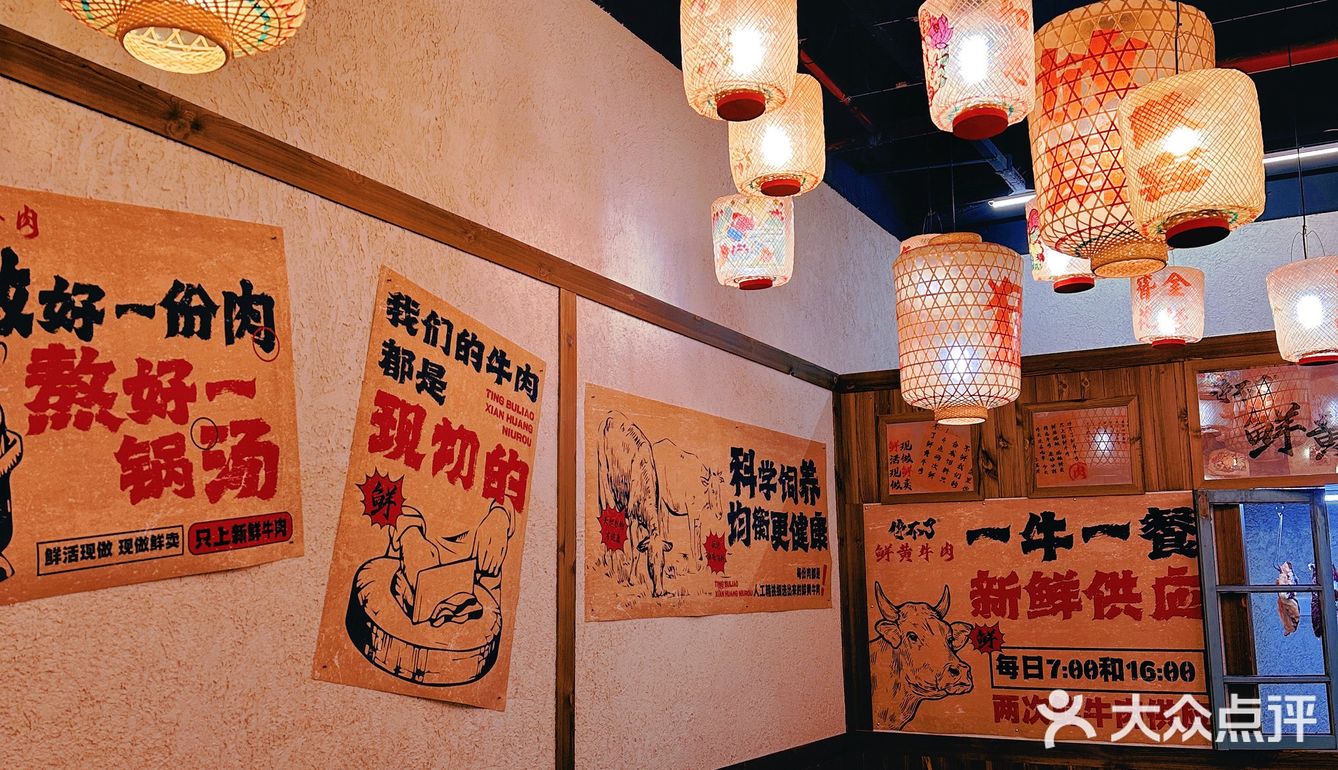 肉
做好一份肉
熬好一
锅汤
鲜活现做 现做鲜卖
只上新鲜牛肉
我们的牛肉
都是
TING BULIAO
XIAN HUANG
NIUROU
现切的
鲜
科学饲养
均衡更健康
每份肉都是
人工精挑细选出来的鲜黄牛肉
TING BULIAO
XIAN HUANG NIUROU
金
鲜现
活做
现鲜
做卖
肉
鲜黄
停不了
鲜黄牛肉
一牛一餐
新鲜供应
鲜
每日7:00和16:00
两次
大众点评